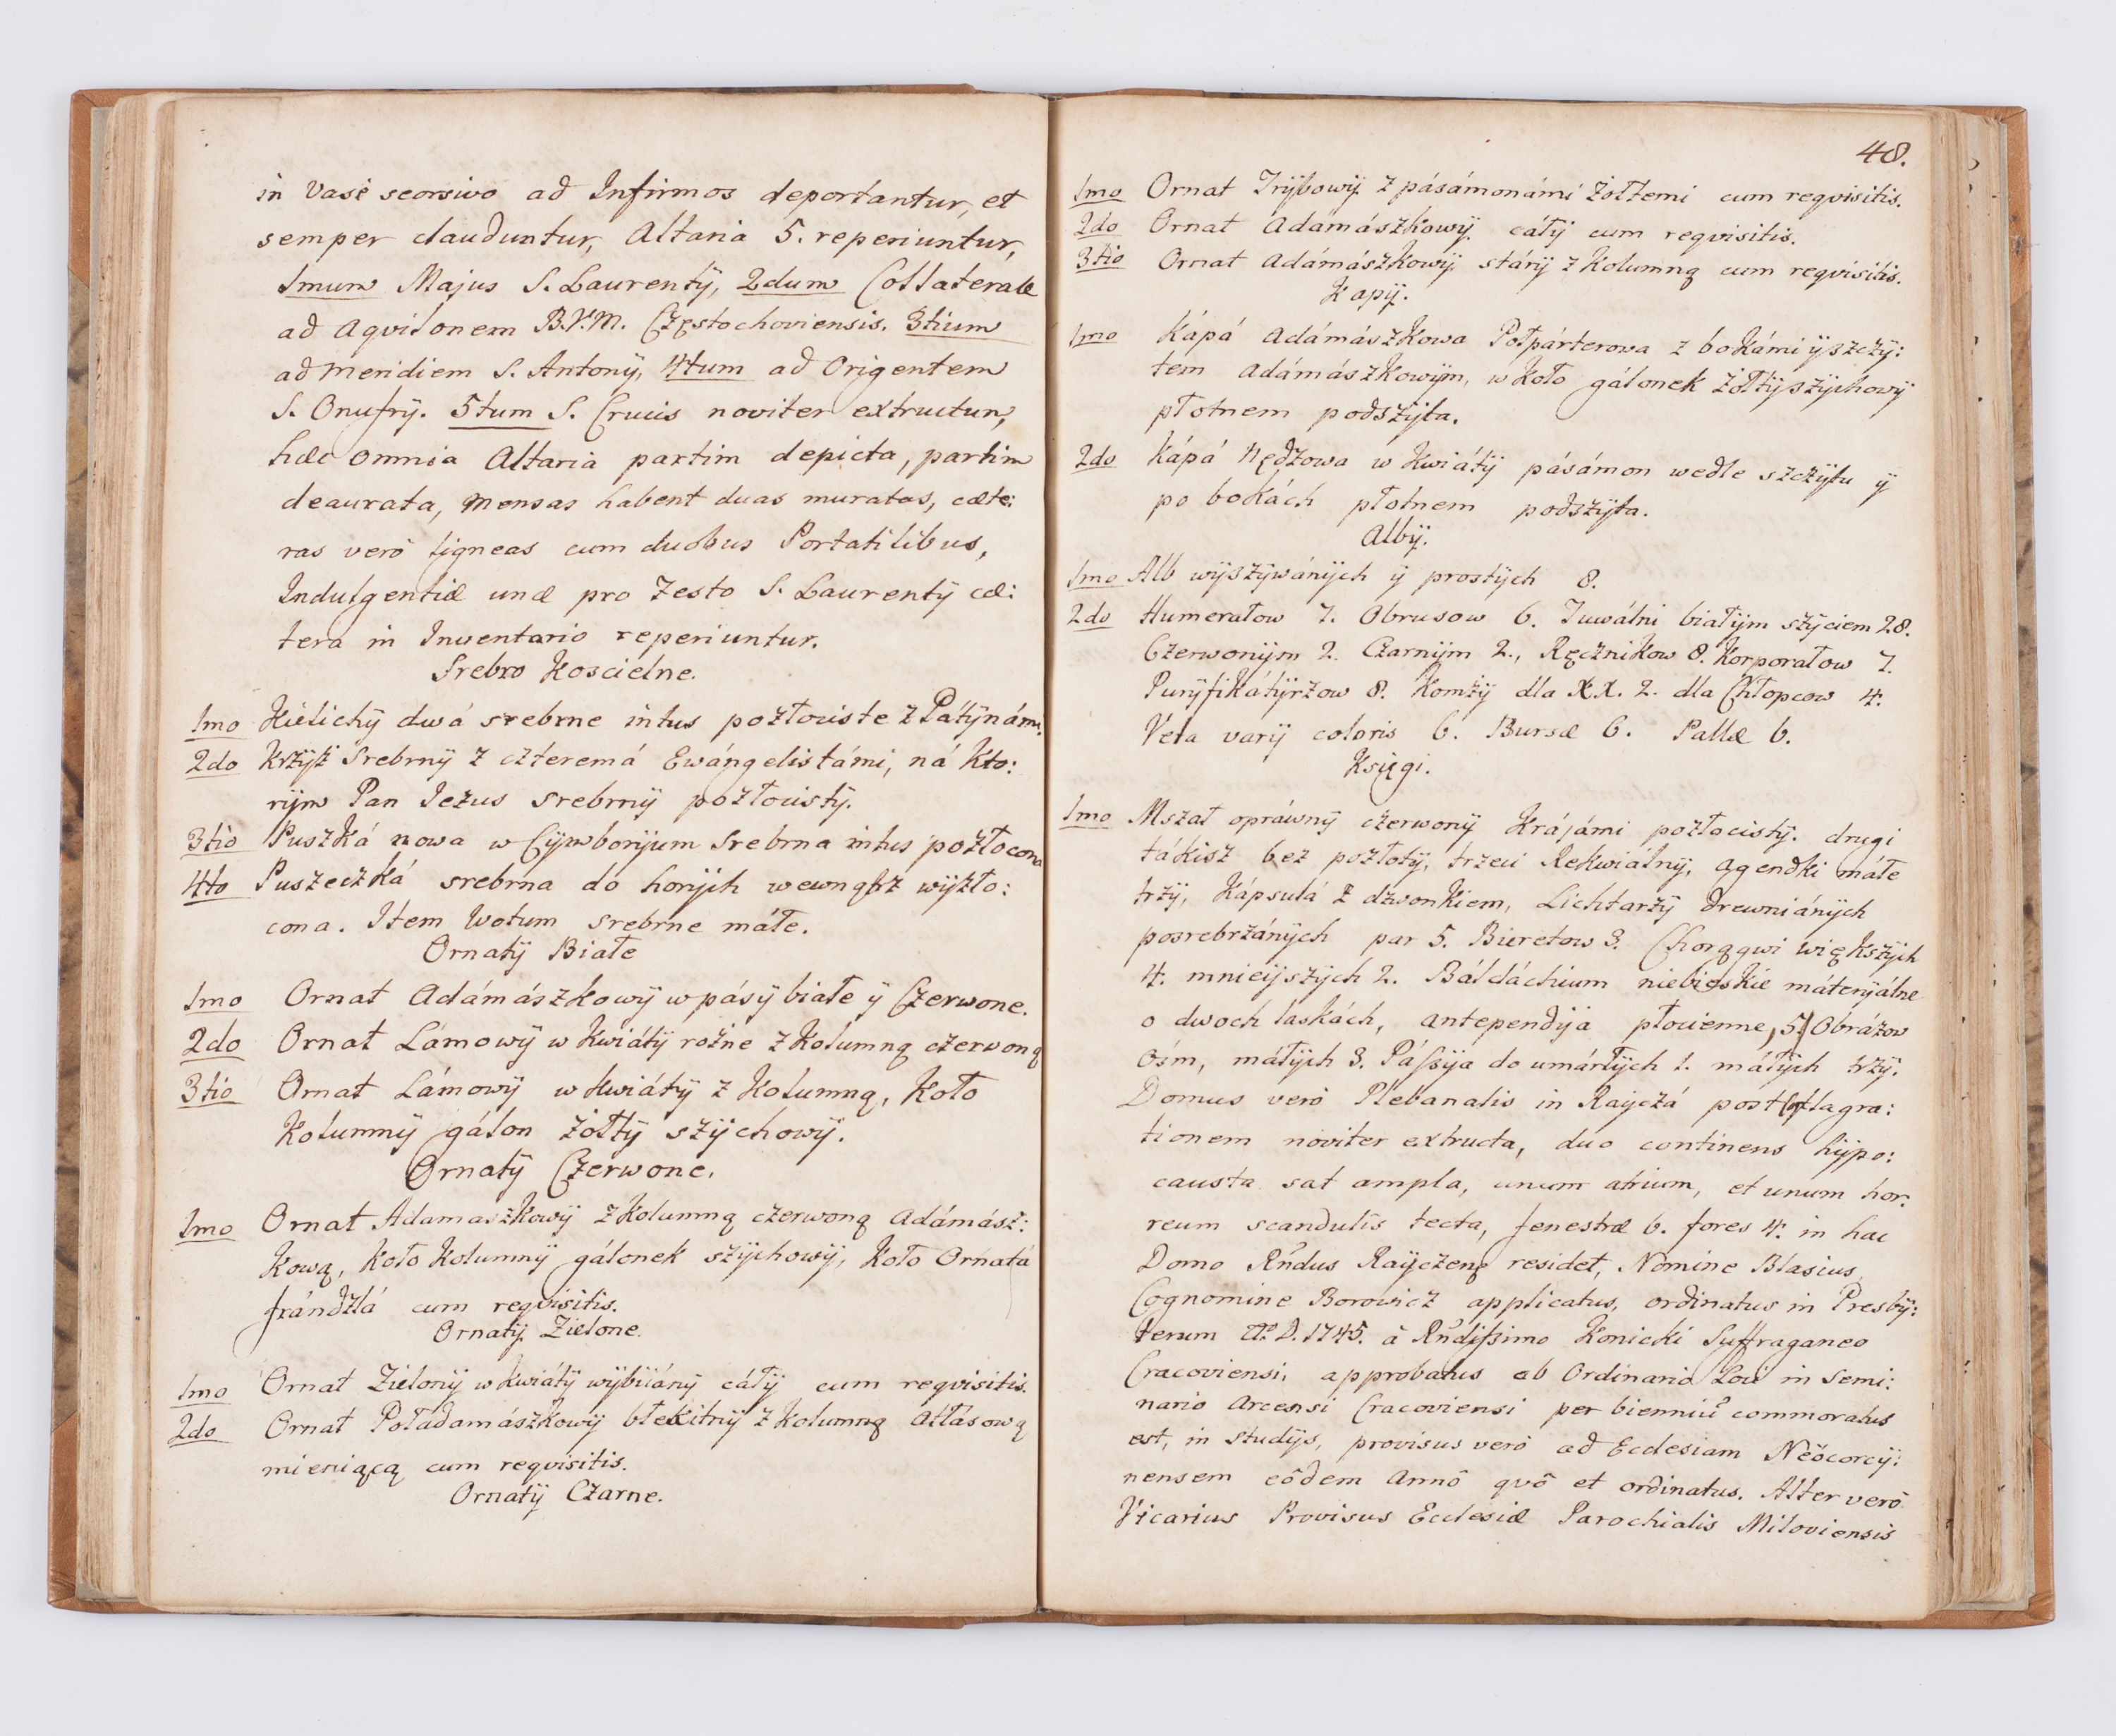 in Vase seorsivo ad Infirmos deportantur, et
semper clauduntur, Altaria 5. reperiuntur,
1mum Majus S. Laurentÿ, 2dum Collaterale
ad Aqvilonem B.V.M. Częstochoviensis. 3tium
ad Meridiem S. Antonÿ, 4tum ad Origentem
S. Onufrÿ. 5tum S. Crucis noviter extructum,
hæc omnia Altaria partim depicta, partim
deaurata, Mensas habent duas muratas, cæte:
ras verò ligneas cum duobus Portatilibus,
Indulgentiæ unæ pro Festo S. Laurentÿ cæ:
tera in Inventario reperiuntur.
Srebro Koscielne.
1mo Kielichÿ dwá srebrne intus pozłociste z Pátÿnámi.
2do Krzÿż Srebrnÿ z czteremá Ewángelistámi, ná Kto:
rÿm Pan Jezus srebrnÿ pozłocistÿ.
3tio Puszká nowa w Cÿmborÿum Srebrna intus pozłocona
4to Puszeczká srebrna do horÿch wewnątrz wÿzło:
cona. Item Wotum srebrne máłe.
Ornatÿ Białe
1mo Ornat Adámászkowÿ w pásÿ białe ÿ Czerwone.
2do Ornat Lámowÿ w Kwiátÿ rożne z Kolumną czerwoną
3tio Ornat Lámowÿ w Kwiátÿ z Kolumną, Koło
Kolumnÿ gálon żołtÿ szÿchowÿ.
Ornatÿ Czerwone.
1mo Ornat Adamaszkowÿ z Kolumną czerwoną Adámász:
Kową, Koło Kolumnÿ gálonek szÿchowÿ, Koło Ornatá
frándzlá cum reqvisitis.
Ornatÿ Zielone.
1mo Ornat Zielonÿ w Kwiátÿ wÿbiiánÿ cáłÿ cum reqvisitis.
2do Ornat Poładamászkowÿ błekitnÿ z Kolumną Atłásową
mieniącą cum reqvisitis.
Ornatÿ Czarne.
48.
1mo Ornat Trÿbowÿ z pásámonámi żołtemi cum reqvisitis.
2do Ornat Adámászkowÿ cáłÿ cum reqvisitis.
3tio Ornat Adámászkowÿ stárÿ z Kolumną cum reqvisitis.
Kapÿ.
1mo Kápá Adámászkowa Połpárterowa z bokámi ÿ szczÿ:
tem Adámászkowÿm, w Koło gálonek żołtÿ szÿchowÿ
płotnem podszÿta.
2do Kápá Nędzowa w Kwiátÿ pásámon wedle szczÿtu ÿ
po bokách płotnem podszÿta.
Albÿ.
1mo Alb wÿszÿwánÿch ÿ prostÿch 8.
2do Humerałow 7. Obrusow 6. Tuwálni białÿm szÿciem 28.
Czerwonÿm 2. Czarnÿm 2., Ręcznikow 8. Korporałow 7.
Purÿfikátÿrzow 8. Komżÿ dla X.X. 2. dla Chłopcow 4.
Vela varÿ coloris 6. Bursæ 6. Pallæ 6.
Księgi.
1mo Mszał opráwnÿ czerwonÿ Krájámi pozłocistÿ. drugi
tákisz bez pozłotÿ, trzeci Rekwiálnÿ, Agendki máłe
trzÿ, Kápsulá z dzwonkiem, Lichtarzÿ drewniánÿch
posrebrzánÿch par 5. Bieretow 3. Chorągwi większÿch
4. mnieÿszÿch 2. Báldáchium niebieskie máterÿálne
o dwoch laskách, Antependÿa płocienne, 5. Obrázow
Ośm, máłÿch 3. Páſsÿa do umárłÿch 1. máłÿch trzÿ.
Domus verò Plebanalis in Raÿczá post flagra:
tionem noviter extructa, duo continens hÿpo:
causta sat ampla, unum atrium, et unum hor:
reum scandulis tecta, fenestræ 6. fores 4. in hac
Domo Rndus Raÿczeng residet, Nomine Blasius
Cognomine Borowicz applicatus, ordinatus in Presbÿ:
terum A.o D. 1745. à Rndiſsimo Konicki Suffraganeo
Cracoviensi, approbatus ab Ordinario Loci in Semi:
nario Arcensi Cracoviensi per bienniū commoratus
est, in studÿs, provisus verò ad Ecclesiam Neöcorcÿ:
nensem eôdem Annô qvô et ordinatus. Alter verò
Vicarius Provisus Ecclesiæ Parochialis Miloviensis